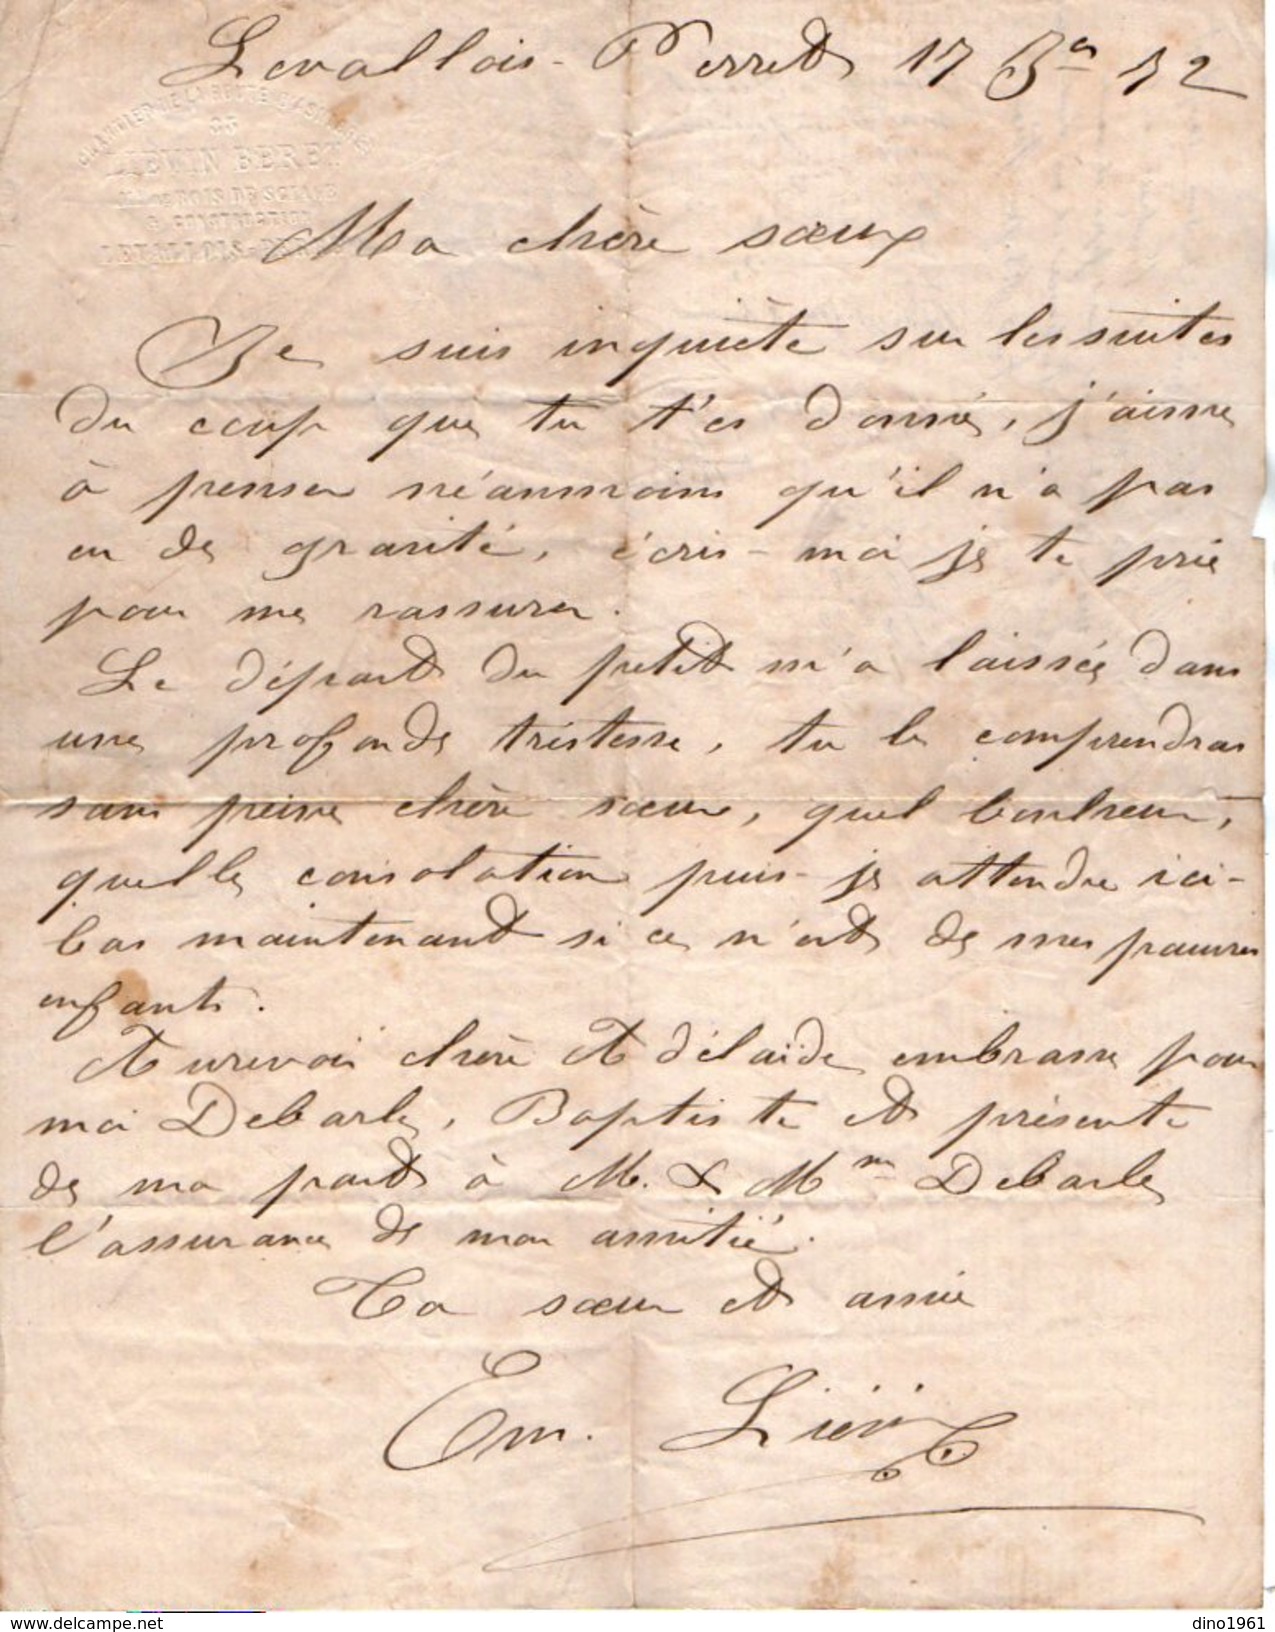 Levallois-Perret 17 Bre 72
CHANTIER DE LA
LIEVIN BERET
BOIS DE SCIAGE
& CONSTRUCTION
LEVALLOIS-PERRET
Ma chère sœur
Je suis inquiète sur les suites
du coup que tu t'es donné, j'aime
à penser néanmoins qu'il n'a pas
eu de gravité, écris-moi je te prie
pour me rassurer.
Le départ du petit m'a laissée dans
une profonde tristesse, tu le comprendras
sans peine chère sœur, quel bonheur,
quelle consolation puis-je attendre ici-
bas maintenant si ce n'est de mes pauvres
enfants.
Aurevoir chère Adélaïde embrasse pour
moi Debarle, Baptiste et présente
de ma part à M. & Mme Debarle
l'assurance de mon amitié.
Ta sœur et amie
Em. Liévin
www.delcampe.net
dino1961